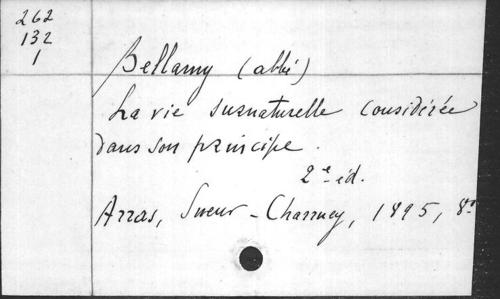 262
132
1
Bellamy (abbé)
La vie surnaturelle considérée
dans son principe.
2e éd.
Arras, Sueur-Charruey, 1895, 8o